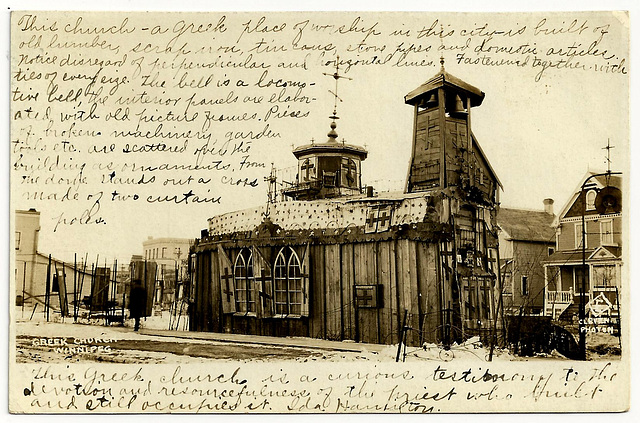 This church - a Greek place of worship in this city is built of
old lumber, scrap iron, tin cans, stove pipes and domestic articles.
Notice disregard of perpendicular and horizontal lines. Fastenered together with
ties of every age. The bell is a locomo-
tive bell, the interior panels are elabor-
ated, with old picture frames. Pieces
of broken machinery, garden
tools etc. are scattered over the
building as ornaments. From
the dome stands out a cross
made of two curtain
poles.
GREEK CHURCH
WINNIPEG
PHOTO
This Greek church is a curious testimony to the
devotion and resourcefulness of the priest who built
and still occupies it. Ida Hamilton.